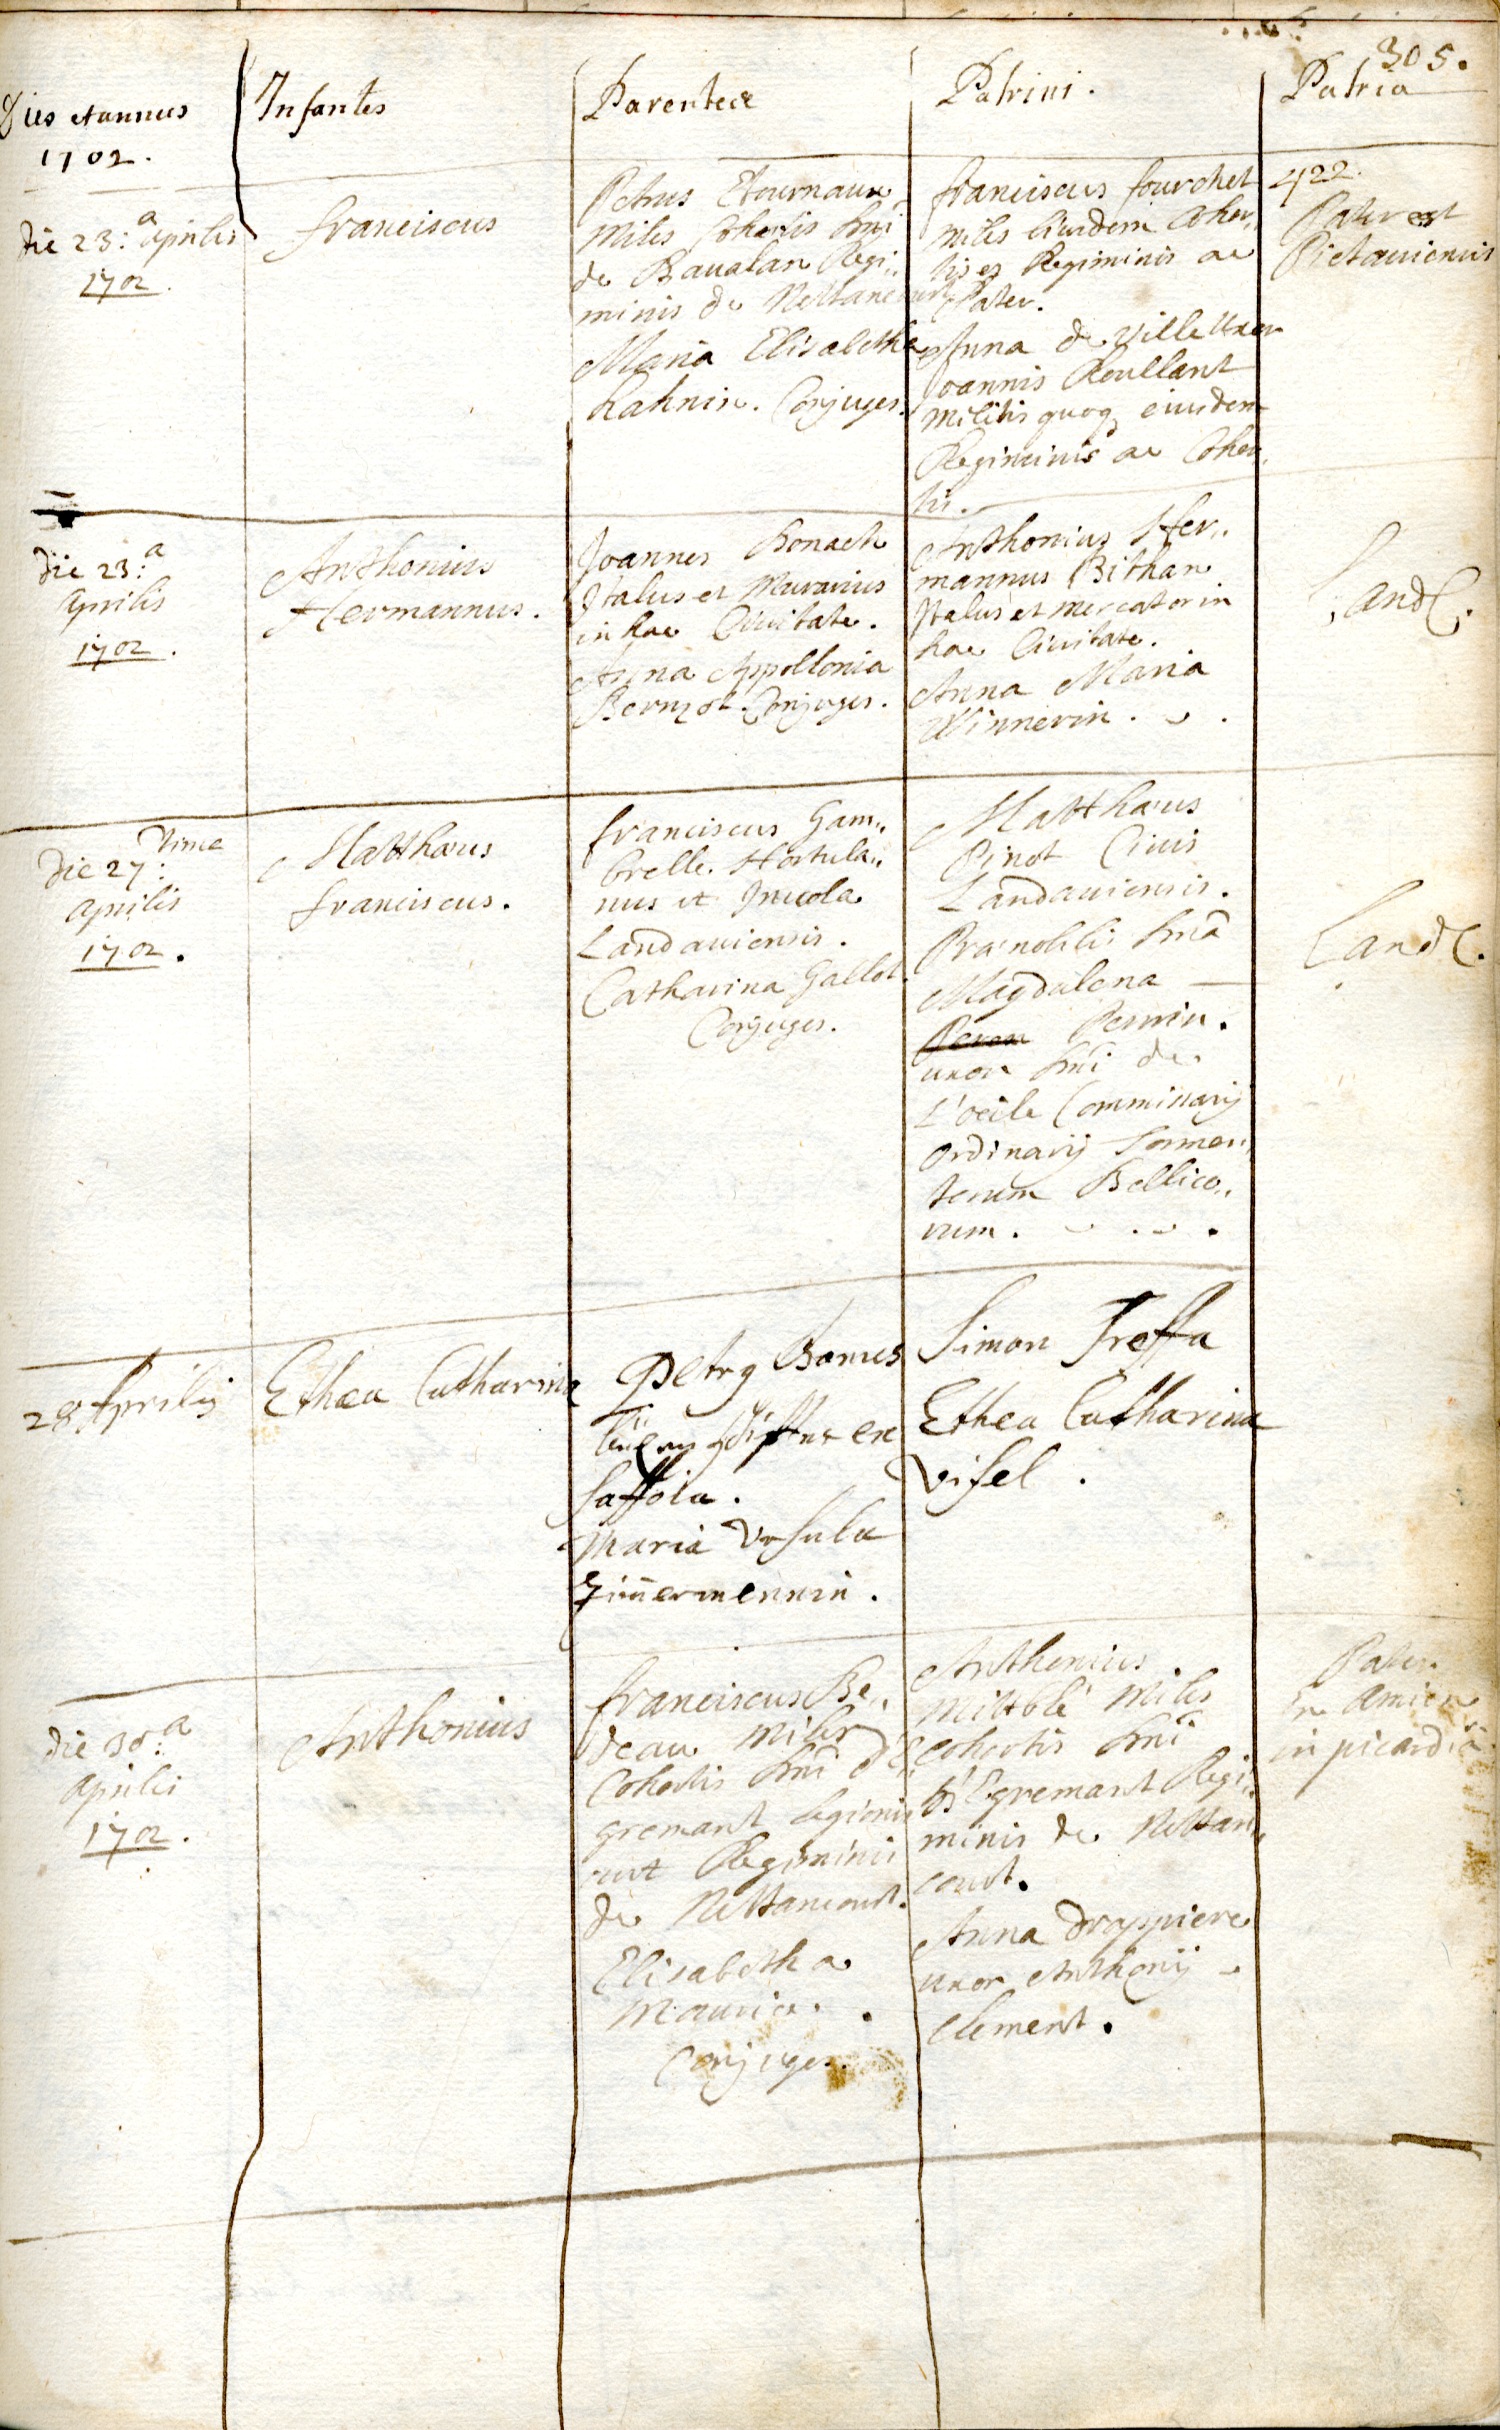 305.
Dies et annus
1702.
Infantes
Parentes
Patrini.
Patria
die 23:a Aprilis
1702.
franciscus
Petrus Etournaux
Miles Cohortis Dni
de Baualan Regi„
minis de Nettancourt
Maria Elisabetha
hahnin. Conjuges.
franciscus fourchet
miles eiusdem Cohor„
tis et Regiminis ac
Pater.
Anna de Ville Uxor
Joannis Roullant
Militis quoq eiusdem
Regiminis ac Cohor„
tis.
422.
Pater est
Pictauiensis
die 23:a
Aprilis
1702.
Anthonius
Hermannus.
Joannes Bonach
Italus et Murarius
in hac Ciuitate.
Anna Appollonia
Conjuges.
Anthonius Her„
mannus Bithan
Italus et mercator in
hac Ciuitate.
Anna Maria
Winnerin.
Land
die 27:tima
Aprilis
1702.
Matthæus
franciscus.
franciscus Gam„
brelle Hortula„
nus et Incola
Landauiensis.
Catharina Gallot.
Conjuges.
Matthæus
Pinot Ciuis
Landauiensis.
Prænobilis Dna
Magdalena
Perrin.
uxor Dni de
L'oeile Commissarij
Ordinarij Tormen„
torum Bellico„
rum.
Land
28 Aprilis
Ethea Catharina
Petrg Bomes
ex
Saffoia.
Maria Vrsula
Zim̄ermennin.
Simon Treffa
Ethea Catharina
Visel.
die 30:a
Aprilis
1702.
Anthonius
franciscus Be„
deau Miles
Cohortis Dni d'E„
gremant Legionis
aut Regiminis
de Nettancourt.
Elisabetha
Maurice.
Conjuges.
Anthonius
Mittblé Miles
Cohortis Dni
d'Egremant Regi„
minis de Nettan„
court.
Anna Drappiere
uxor Anthonij
Clement.
Pater
Amien
in picardia